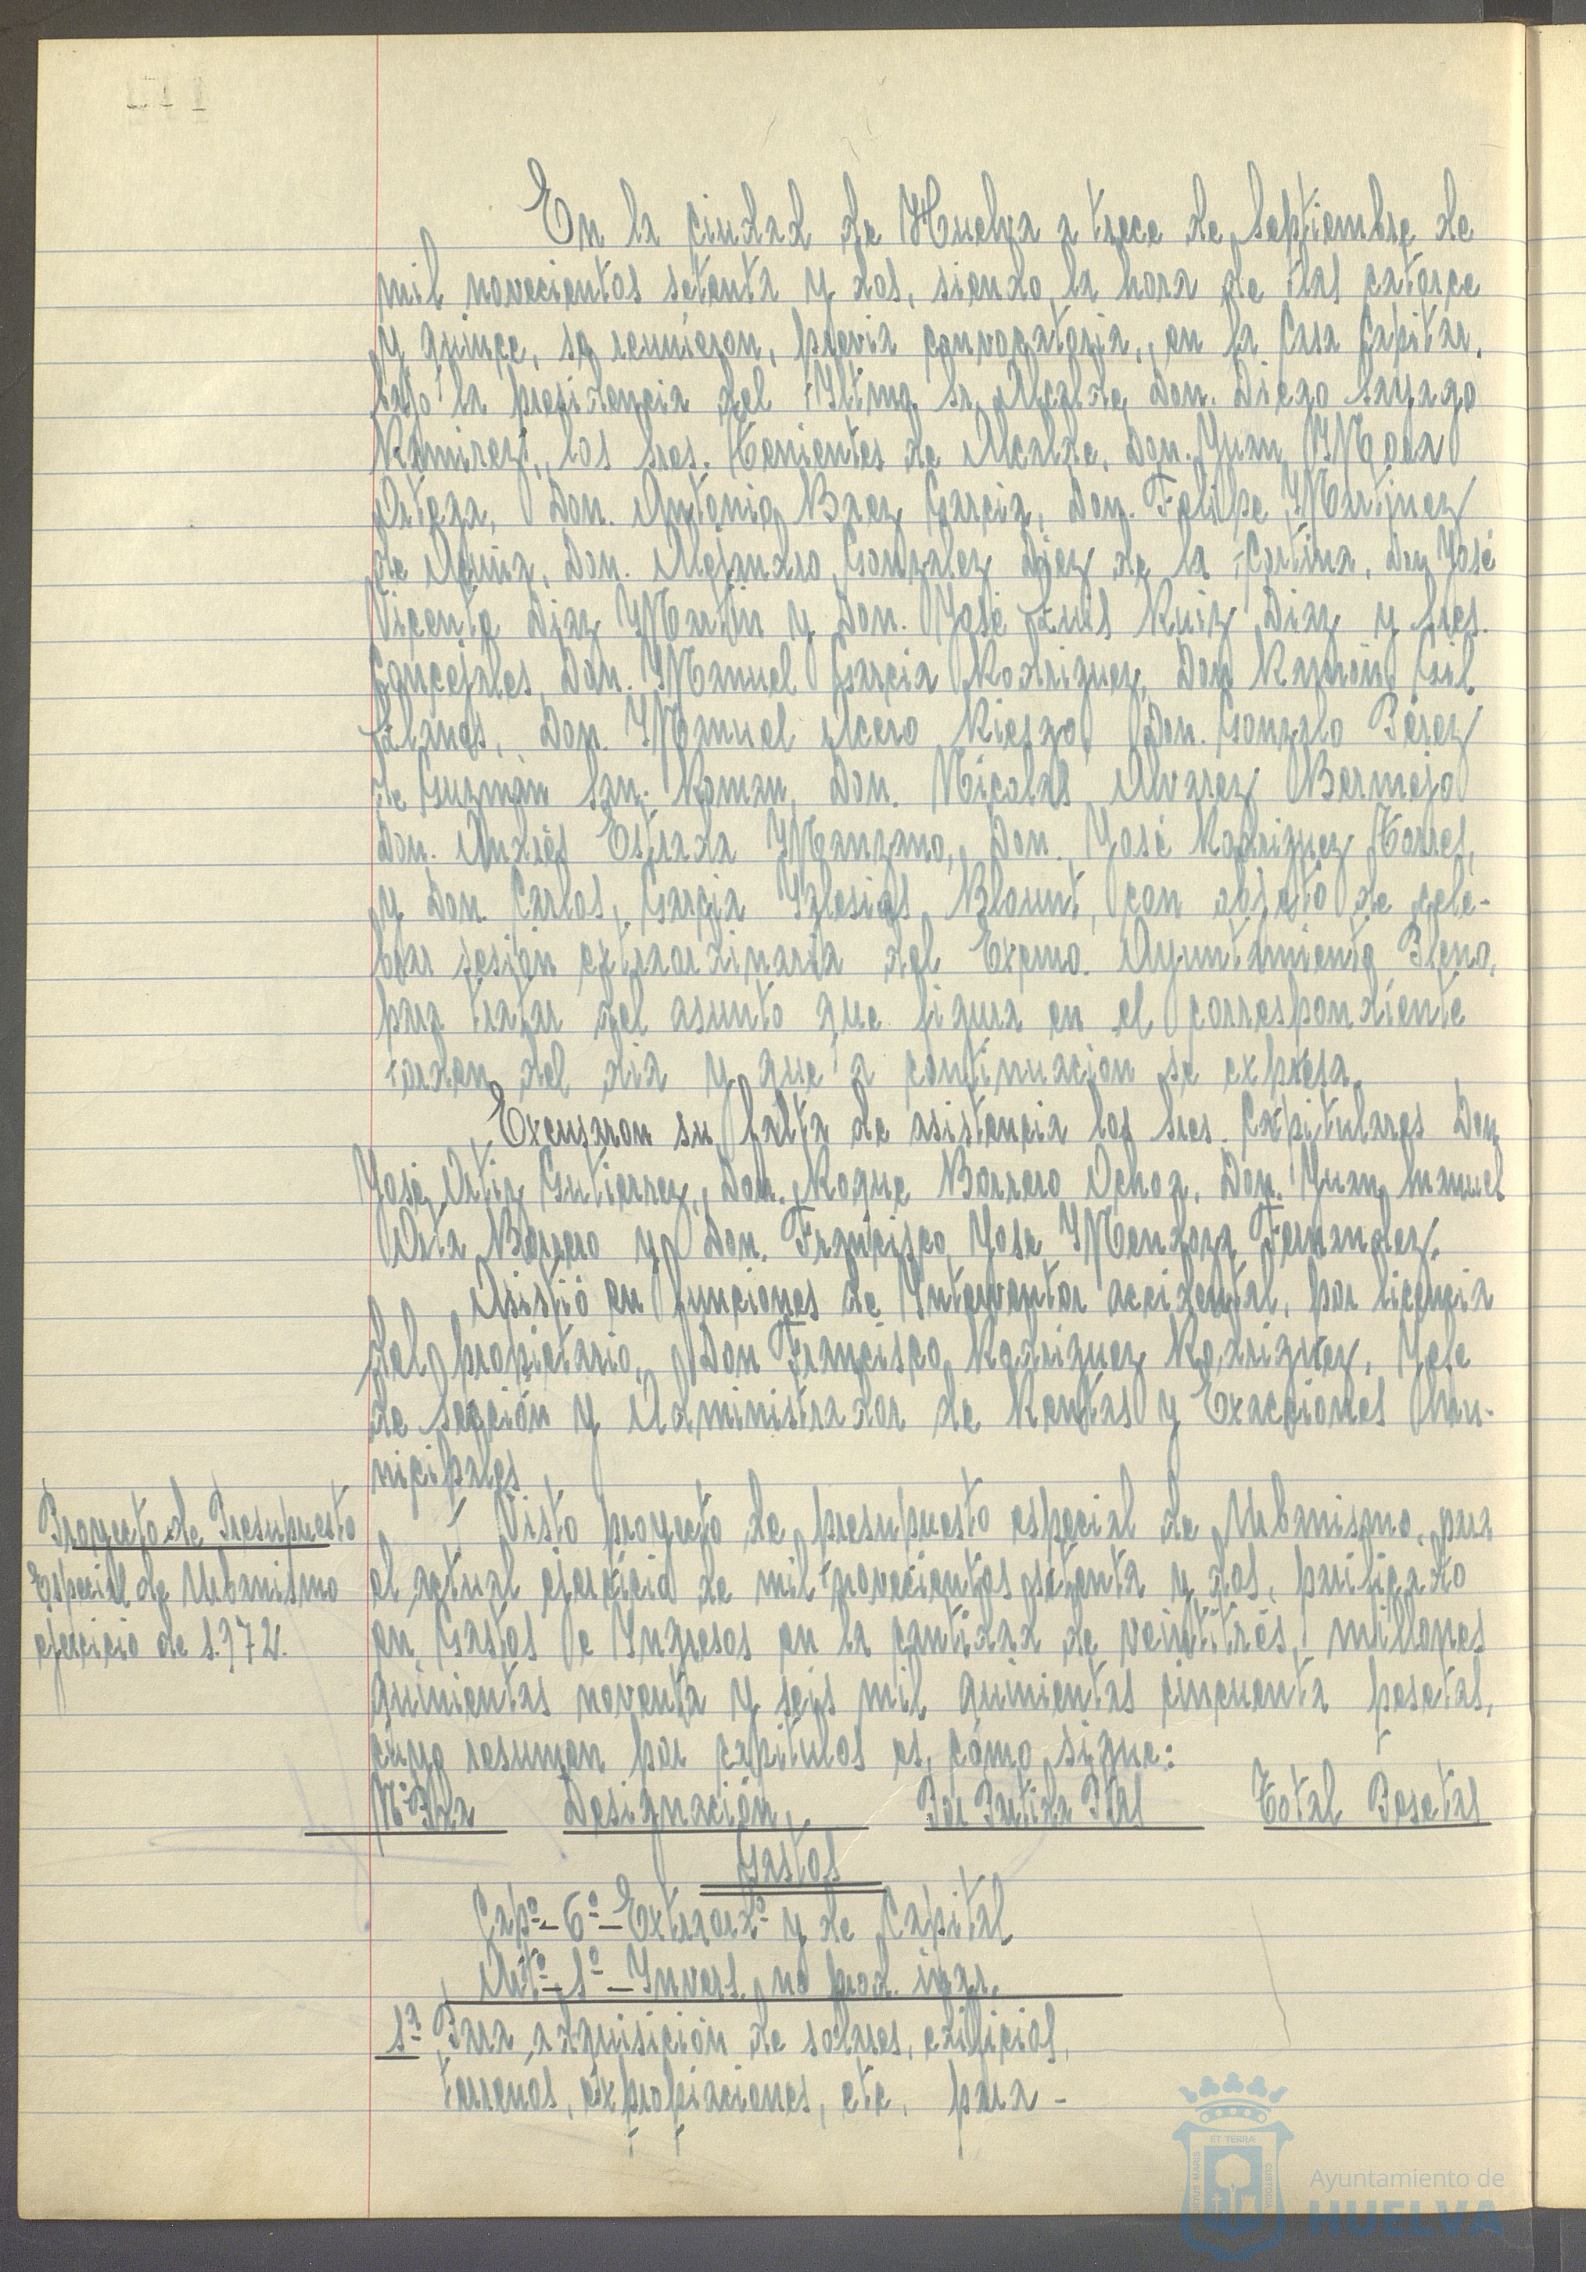 En la ciudad de Huelva a trece de septiembre de
mil novecientos setenta y dos, siendo la hora de las catorce
y quince, se reunieron, previa convocatoria, en la Casa Capitar.
bajo la presidencia del Iltmo. Sr. Alcalde, Don. Diego Sayago
Ramirez, los Sres. Tenientes de Alcalde, Don. Juan Mora
Ortega, Don. Antonio Baez Garcia, Don. Felipe Martinez
de Acuña, Don. Alejandro Gonzalez Diez de la Cortina, Don José
Vicente Diaz Martin y Don. José Luis Ruiz Diaz y Sres.
Concejales, Don. Manuel Garcia Rodriguez, Don Ramón Gil
Llanes, Don. Manuel Acero Riesgo, Don. Gonzalo Pérez
de Guzmán San Roman, Don. Nicolás Alvarez Bermejo
Don. Andrés Estrada Manzano, Don. José Rodriguez Torres,
y Don. Carlos, Garcia Iglesias Blount, con objeto de cele-
brar sesión extraordinaria del Excmo. Ayuntamiento Pleno,
para tratar del asunto que figura en el correspondiente
orden del dia y que a continuacion se expresa.
Excusaron su falta de asistencia los Sres. Capitulares Don
José Ortiz Gutierrez, Don. Roque Borrero Ochoa, Don. Juan Manuel
Orta Borrero y Don. Francisco Jose Mendoza Fernandez.
Asistió en funciones de Interventor accidental, por licencia
del propietario, Don Francisco Rodriguez Rodriguez, Jefe
de Sección y Administrador de Rentas y Exacciones Mu-
nicipales
Proyecto de Presupuesto
Especial de Urbanismo
ejercicio de 1.972.
Visto proyecto de presupuesto especial de Urbanismo, para
el actual ejercicio de mil novecientos setenta y dos, cifrado
en Gastos e Ingresos en la cantidad de veintitrés, millones
quinientas noventa y seis mil quinientas cincuenta pesetas,
cuyo resumen por capitulos es, cómo sigue:
Nº Pda Designación, Por Partida Ptas Total Pesetas
Gastos
Capº- 6º- Extraordº y de Capital
Artº- 1º- Invers. no prod. ingr.
1ª Para adquisición de solares, edificios,
terrenos, expropiaciones, etc. para -
PORTUS MARIS
ET TERRA
CUSTODIA
Ayuntamiento de
HUELVA